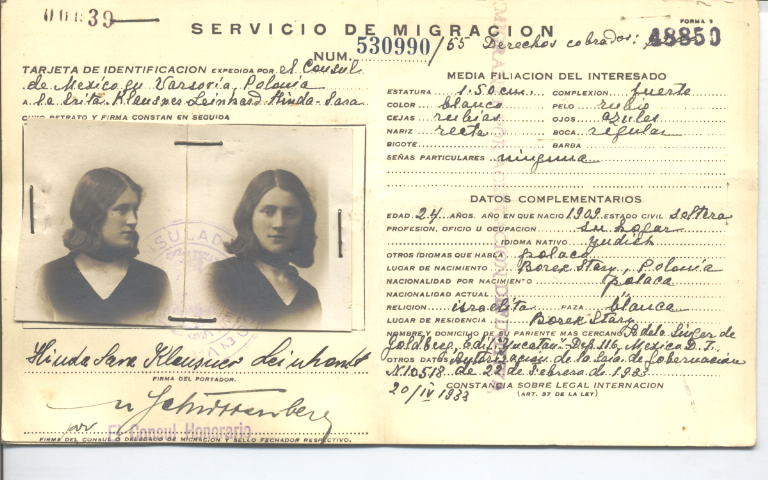 00839
SERVICIO DE MIGRACION
FORMA 9
48850
NUM. 530990/55 Derechos cobrados:
TARJETA DE IDENTIFICACION EXPEDIDA POR el Consul
de Mexico en Varsovia, Polonia
A la Srita. Klausner Leinhard Hinda-Sara
CUYO RETRATO Y FIRMA CONSTAN EN SEGUIDA
Hinda Sara Klausner Leinhardt
FIRMA DEL PORTADOR.
por El Consul Honorario
FIRMA DEL CONSUL O DELEGADO DE MIGRACION Y SELLO FECHADOR RESPECTIVO.
MEDIA FILIACION DEL INTERESADO
ESTATURA 1.50 cm. COMPLEXION fuerte
COLOR blanco PELO rubio
CEJAS rubias OJOS azules
NARIZ recta BOCA regular
BIGOTE BARBA
SEÑAS PARTICULARES ninguna
DATOS COMPLEMENTARIOS
EDAD 24 AÑOS. AÑO EN QUE NACIO 1909. ESTADO CIVIL soltera
PROFESION, OFICIO U OCUPACION su hogar
IDIOMA NATIVO yudish
OTROS IDIOMAS QUE HABLA polaco
LUGAR DE NACIMIENTO Borek Stary, Polonia
NACIONALIDAD POR NACIMIENTO polaca
NACIONALIDAD ACTUAL "
RELIGION israelita RAZA blanca
LUGAR DE RESIDENCIA Borek Stary
NOMBRE Y DOMICILIO DE SU PARIENTE MAS CERCANO Adela Singer de
Goldberg, Edif. Yucatan Dep. 116, Mexico D. F.
OTROS DATOS Autorizacion de la Sria. de Gobernación
N 10518. de 22 de Febrero de 1933
20/IV 1933 CONSTANCIA SOBRE LEGAL INTERNACION
(ART. 37 DE LA LEY)